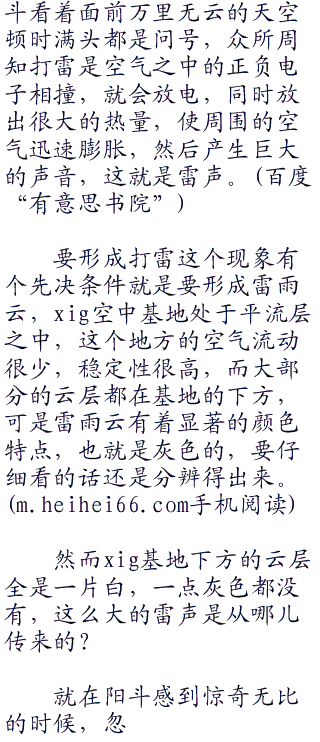 斗看着面前万里无云的天空
顿时满头都是问号，众所周
知打雷是空气之中的正负电
子相撞，就会放电，同时放
出很大的热量，使周围的空
气迅速膨胀，然后产生巨大
的声音，这就是雷声。(百度
“有意思书院”)
要形成打雷这个现象有
个先决条件就是要形成雷雨
云，xig空中基地处于平流层
之中，这个地方的空气流动
很少，稳定性很高，而大部
分的云层都在基地的下方，
可是雷雨云有着显著的颜色
特点，也就是灰色的，要仔
细看的话还是分辨得出来。
(m.heihei66.com手机阅读)
然而xig基地下方的云层
全是一片白，一点灰色都没
有，这么大的雷声是从哪儿
传来的？
就在阳斗感到惊奇无比
的时候，忽